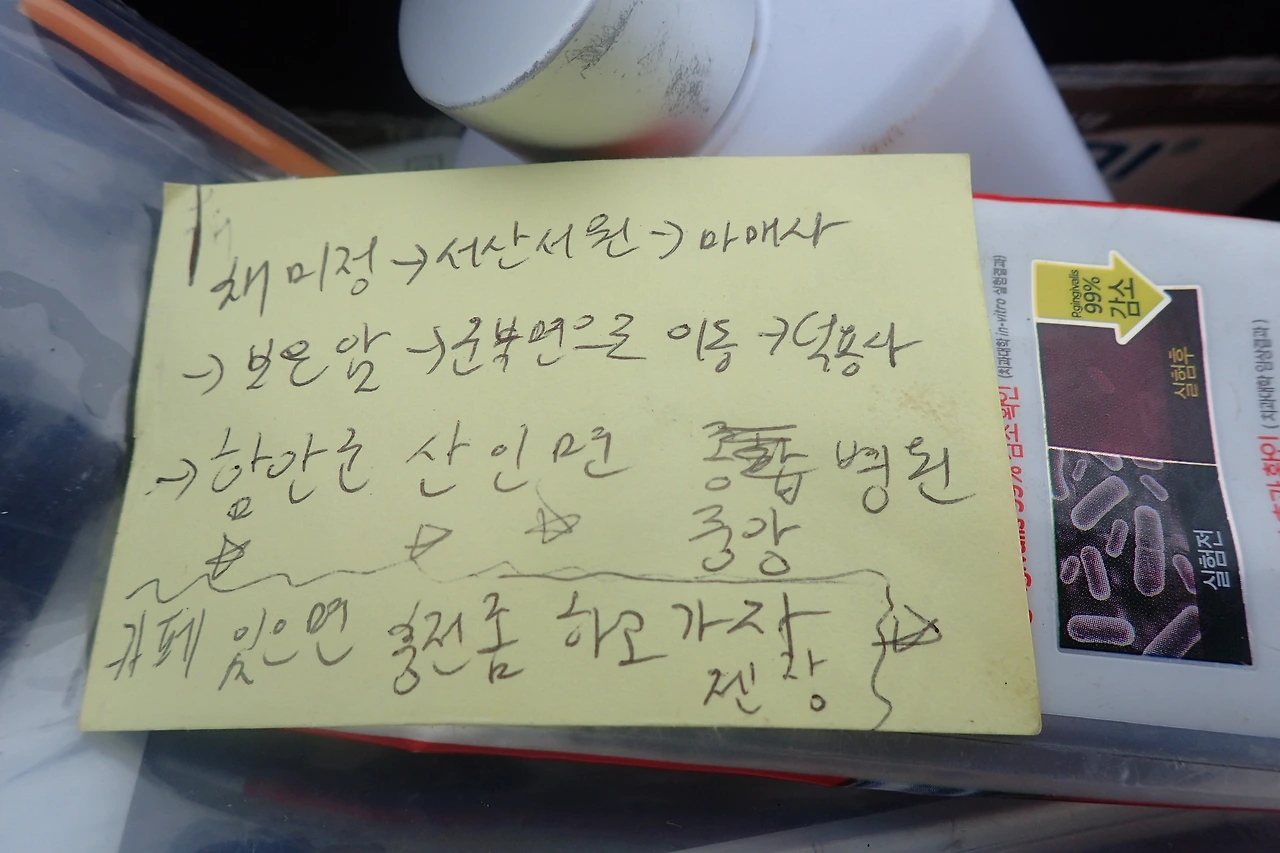 채미정→서산서원→마애사
→보은암→군북면으로 이동→덕용사
→함안군 산인면 병원
중앙
카페 있으면 충전좀 하고 가자
젠장
P.gingivalis
99%
감소
실험후
실험전
(치과대학 in-vitro 실험결과)
(치과대학 임상결과)